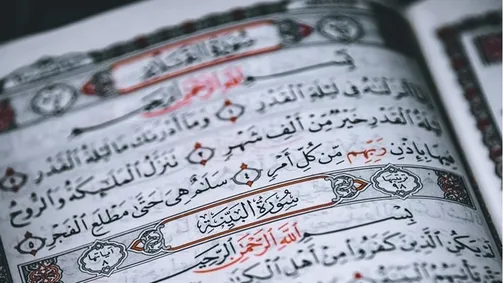 سُورَةُ الْقَدْرِ
بِسْمِ اللَّهِ الرَّحْمَٰنِ الرَّحِيمِ
إِنَّا أَنْزَلْنَاهُ فِي لَيْلَةِ الْقَدْرِ ١ وَمَا أَدْرَاكَ مَا لَيْلَةُ الْقَدْرِ ٢
لَيْلَةُ الْقَدْرِ خَيْرٌ مِّنْ أَلْفِ شَهْرٍ ٣ تَنَزَّلُ الْمَلَٰئِكَةُ وَالرُّوحُ
فِيهَا بِإِذْنِ رَبِّهِم مِّن كُلِّ أَمْرٍ ٤ سَلَٰمٌ هِيَ حَتَّىٰ مَطْلَعِ الْفَجْرِ ٥
٩٨ سُورَةُ الْبَيِّنَةِ آيَاتُهَا ٨
بِسْمِ اللَّهِ الرَّحْمَٰنِ الرَّحِيمِ
لَمْ يَكُنِ الَّذِينَ كَفَرُوا مِنْ أَهْلِ الْكِتَٰبِ